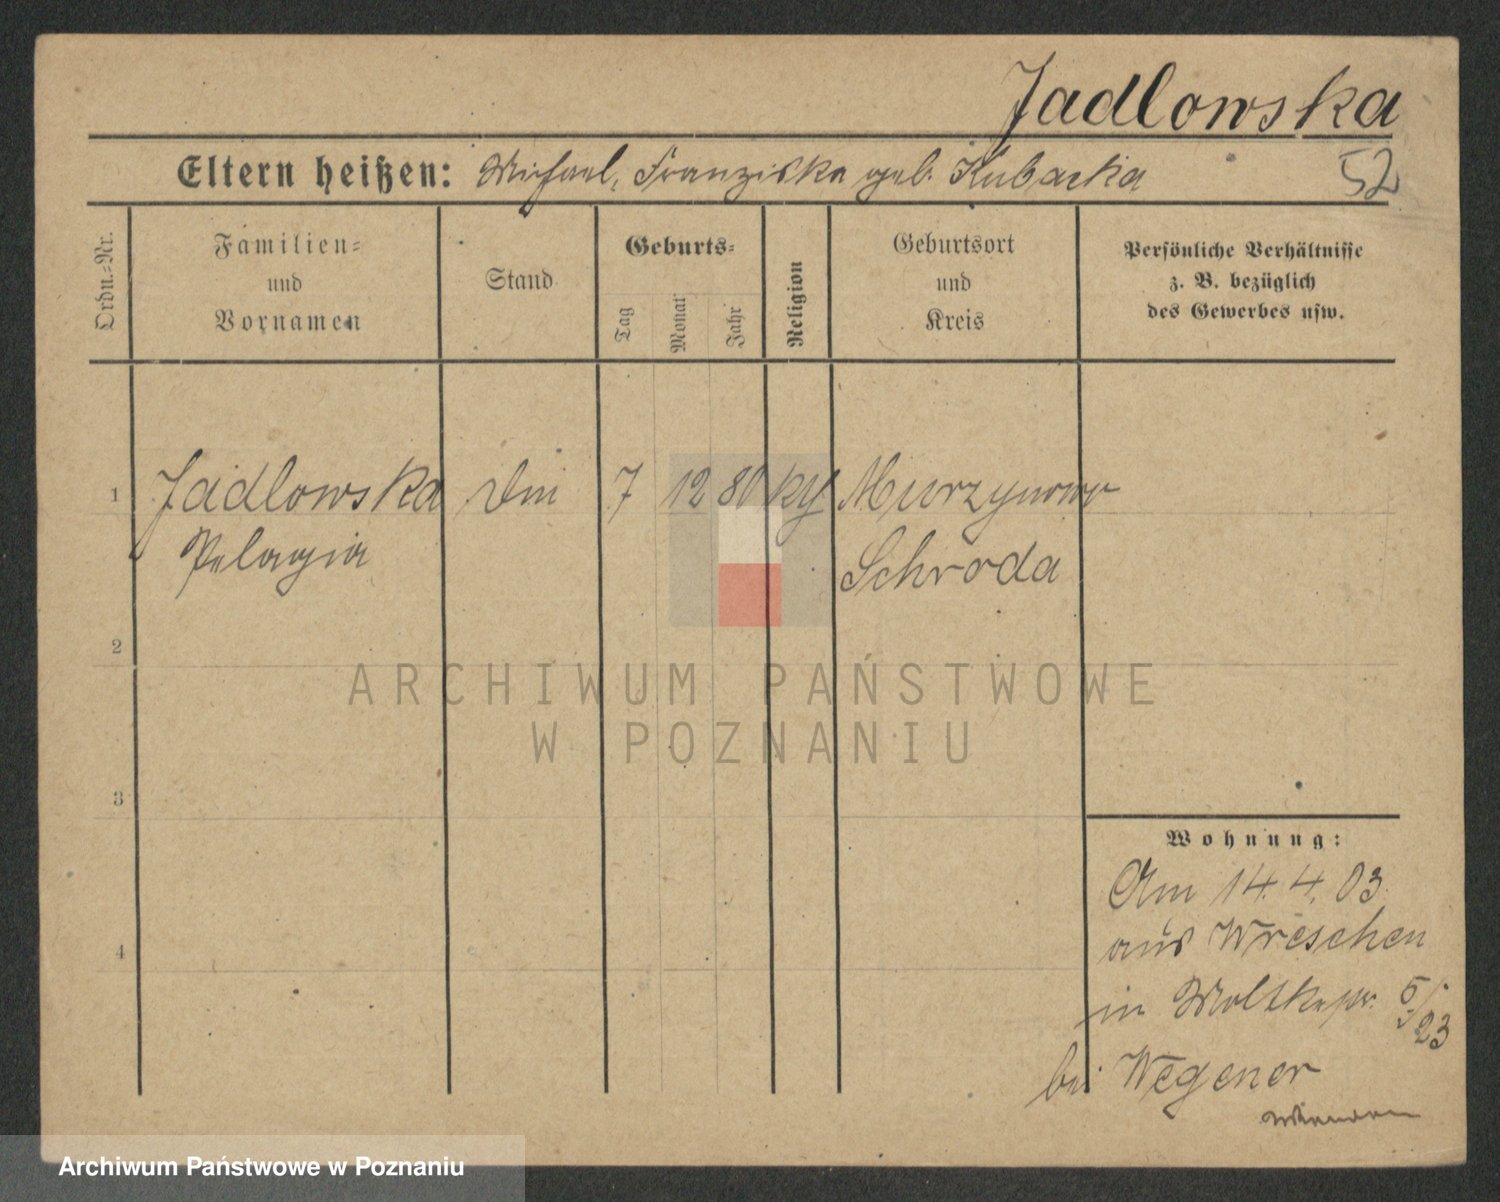 Jadlowska
Eltern heißen: Michael, Franziska geb. Kubacka
52
Ordn.=Nr.
Familien=
und
Vornamen
Stand
Geburts=
Tag
Monat
Jahr
Religion
Geburtsort
und
Kreis
Persönliche Verhältnisse
z. B. bezüglich
des Gewerbes usw.
1 Jadlowska 7 12 80 Murzynowo
Pelagia Schroda
2
3
4
ARCHIWUM PAŃSTWOWE
W POZNANIU
Wohnung:
Am 14. 4. 03.
aus Wreschen
in Moltkestr. 5/
23
bei Wegener
Archiwum Państwowe w Poznaniu